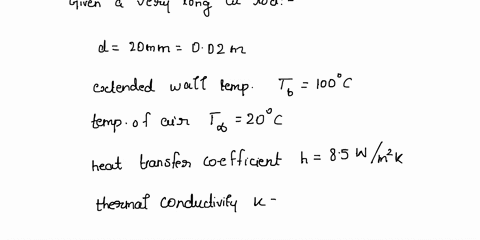 Given a very long cu rod:-
d = 20mm = 0.02 m
extended wall temp. T_b = 100°C
temp. of air T_∞ = 20°C
heat transfer coefficient h = 8.5 W/m²K
thermal conductivity K -